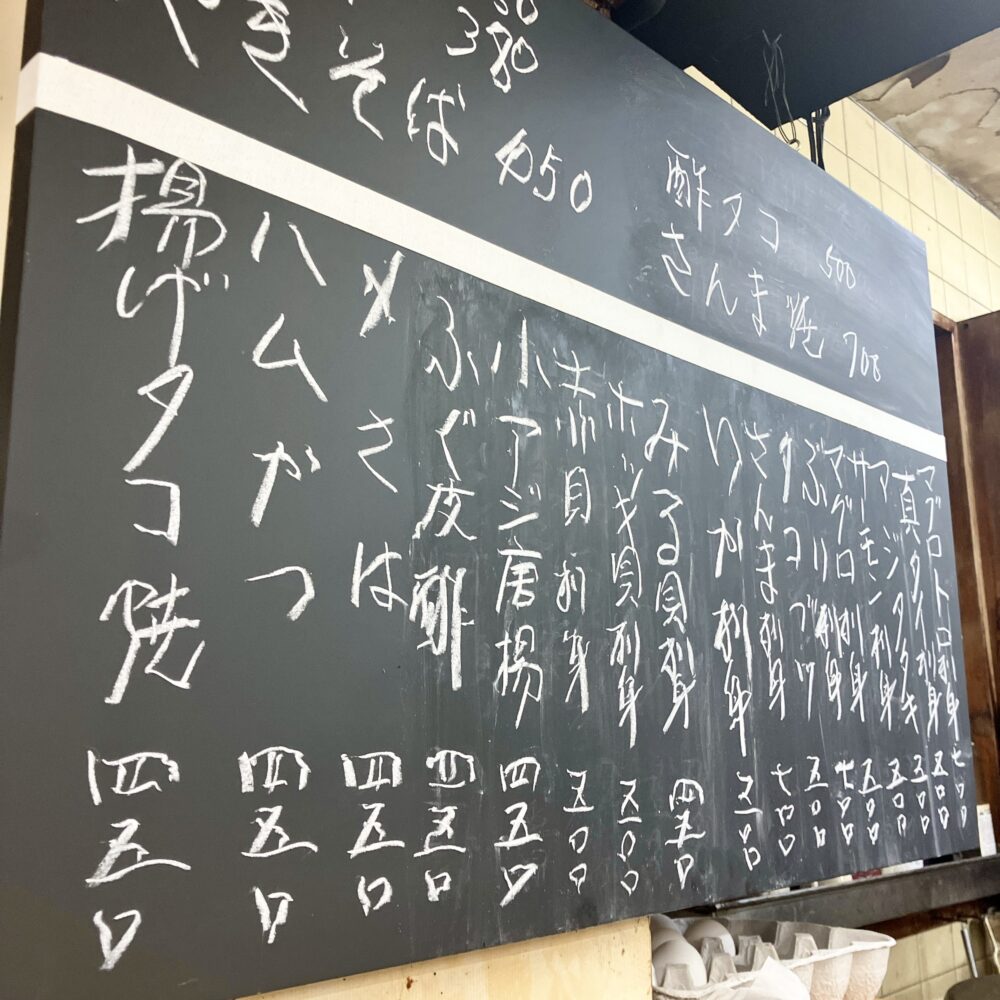 きそば 450
酢タコ 500
さんま焼 700
マグロトロ刺身 七〇〇
真タイ刺身 五〇〇
アジタタキ 五〇〇
サーモン刺身 五〇〇
マグロ刺身 五〇〇
ぶり刺身 七〇〇
タコブツ 五〇〇
さんま刺身 七〇〇
いか刺身 五〇〇
みる貝刺身 四五〇
ホッキ貝刺身 五〇〇
赤貝刺身 五〇〇
小アジ唐揚 四五〇
ふぐ皮酢 四五〇
〆さは 四五〇
ハムかつ 四五〇
揚げタコ焼 四五〇